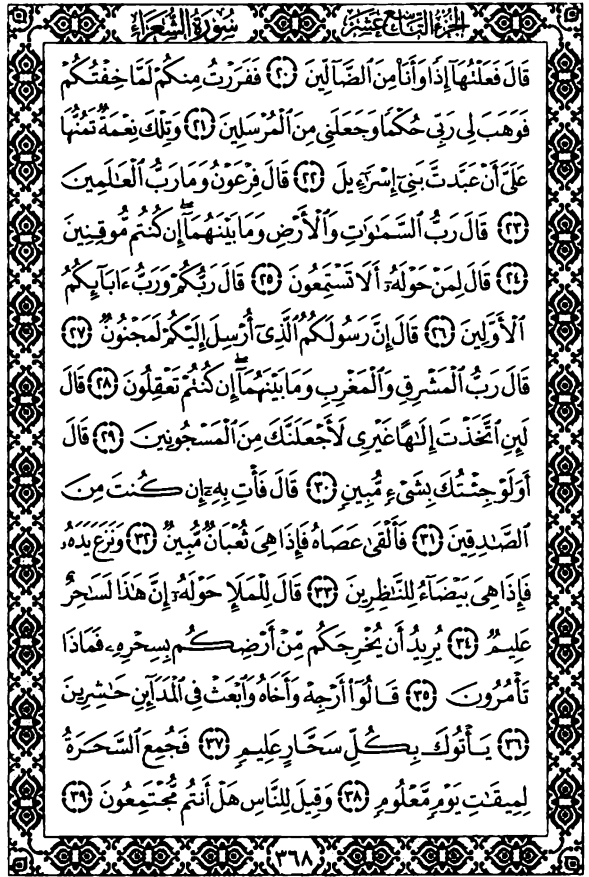 الجزء التاسع عشر سورة الشعراء
قَالَ فَعَلْتُهَآ إِذًا وَأَنَا۠ مِنَ ٱلضَّآلِّينَ ﴿٢٠﴾ فَفَرَرْتُ مِنكُمْ لَمَّا خِفْتُكُمْ
فَوَهَبَ لِى رَبِّى حُكْمًا وَجَعَلَنِى مِنَ ٱلْمُرْسَلِينَ ﴿٢١﴾ وَتِلْكَ نِعْمَةٌ تَمُنُّهَا
عَلَىَّ أَنْ عَبَّدتَّ بَنِىٓ إِسْرَٰٓءِيلَ ﴿٢٢﴾ قَالَ فِرْعَوْنُ وَمَا رَبُّ ٱلْعَٰلَمِينَ
﴿٢٣﴾ قَالَ رَبُّ ٱلسَّمَٰوَٰتِ وَٱلْأَرْضِ وَمَا بَيْنَهُمَآ ۖ إِن كُنتُم مُّوقِنِينَ
﴿٢٤﴾ قَالَ لِمَنْ حَوْلَهُۥٓ أَلَا تَسْتَمِعُونَ ﴿٢٥﴾ قَالَ رَبُّكُمْ وَرَبُّ ءَابَآئِكُمُ
ٱلْأَوَّلِينَ ﴿٢٦﴾ قَالَ إِنَّ رَسُولَكُمُ ٱلَّذِىٓ أُرْسِلَ إِلَيْكُمْ لَمَجْنُونٌ ﴿٢٧﴾
قَالَ رَبُّ ٱلْمَشْرِقِ وَٱلْمَغْرِبِ وَمَا بَيْنَهُمَآ ۖ إِن كُنتُمْ تَعْقِلُونَ ﴿٢٨﴾ قَالَ
لَئِنِ ٱتَّخَذْتَ إِلَٰهًا غَيْرِى لَأَجْعَلَنَّكَ مِنَ ٱلْمَسْجُونِينَ ﴿٢٩﴾ قَالَ
أَوَلَوْ جِئْتُكَ بِشَىْءٍ مُّبِينٍ ﴿٣٠﴾ قَالَ فَأْتِ بِهِۦٓ إِن كُنتَ مِنَ
ٱلصَّٰدِقِينَ ﴿٣١﴾ فَأَلْقَىٰ عَصَاهُ فَإِذَا هِىَ ثُعْبَانٌ مُّبِينٌ ﴿٣٢﴾ وَنَزَعَ يَدَهُۥ
فَإِذَا هِىَ بَيْضَآءُ لِلنَّٰظِرِينَ ﴿٣٣﴾ قَالَ لِلْمَلَإِ حَوْلَهُۥٓ إِنَّ هَٰذَا لَسَٰحِرٌ
عَلِيمٌ ﴿٣٤﴾ يُرِيدُ أَن يُخْرِجَكُم مِّنْ أَرْضِكُم بِسِحْرِهِۦ فَمَاذَا
تَأْمُرُونَ ﴿٣٥﴾ قَالُوٓا۟ أَرْجِهْ وَأَخَاهُ وَٱبْعَثْ فِى ٱلْمَدَآئِنِ حَٰشِرِينَ
﴿٣٦﴾ يَأْتُوكَ بِكُلِّ سَحَّارٍ عَلِيمٍ ﴿٣٧﴾ فَجُمِعَ ٱلسَّحَرَةُ
لِمِيقَٰتِ يَوْمٍ مَّعْلُومٍ ﴿٣٨﴾ وَقِيلَ لِلنَّاسِ هَلْ أَنتُم مُّجْتَمِعُونَ ﴿٣٩﴾
٣٦٨